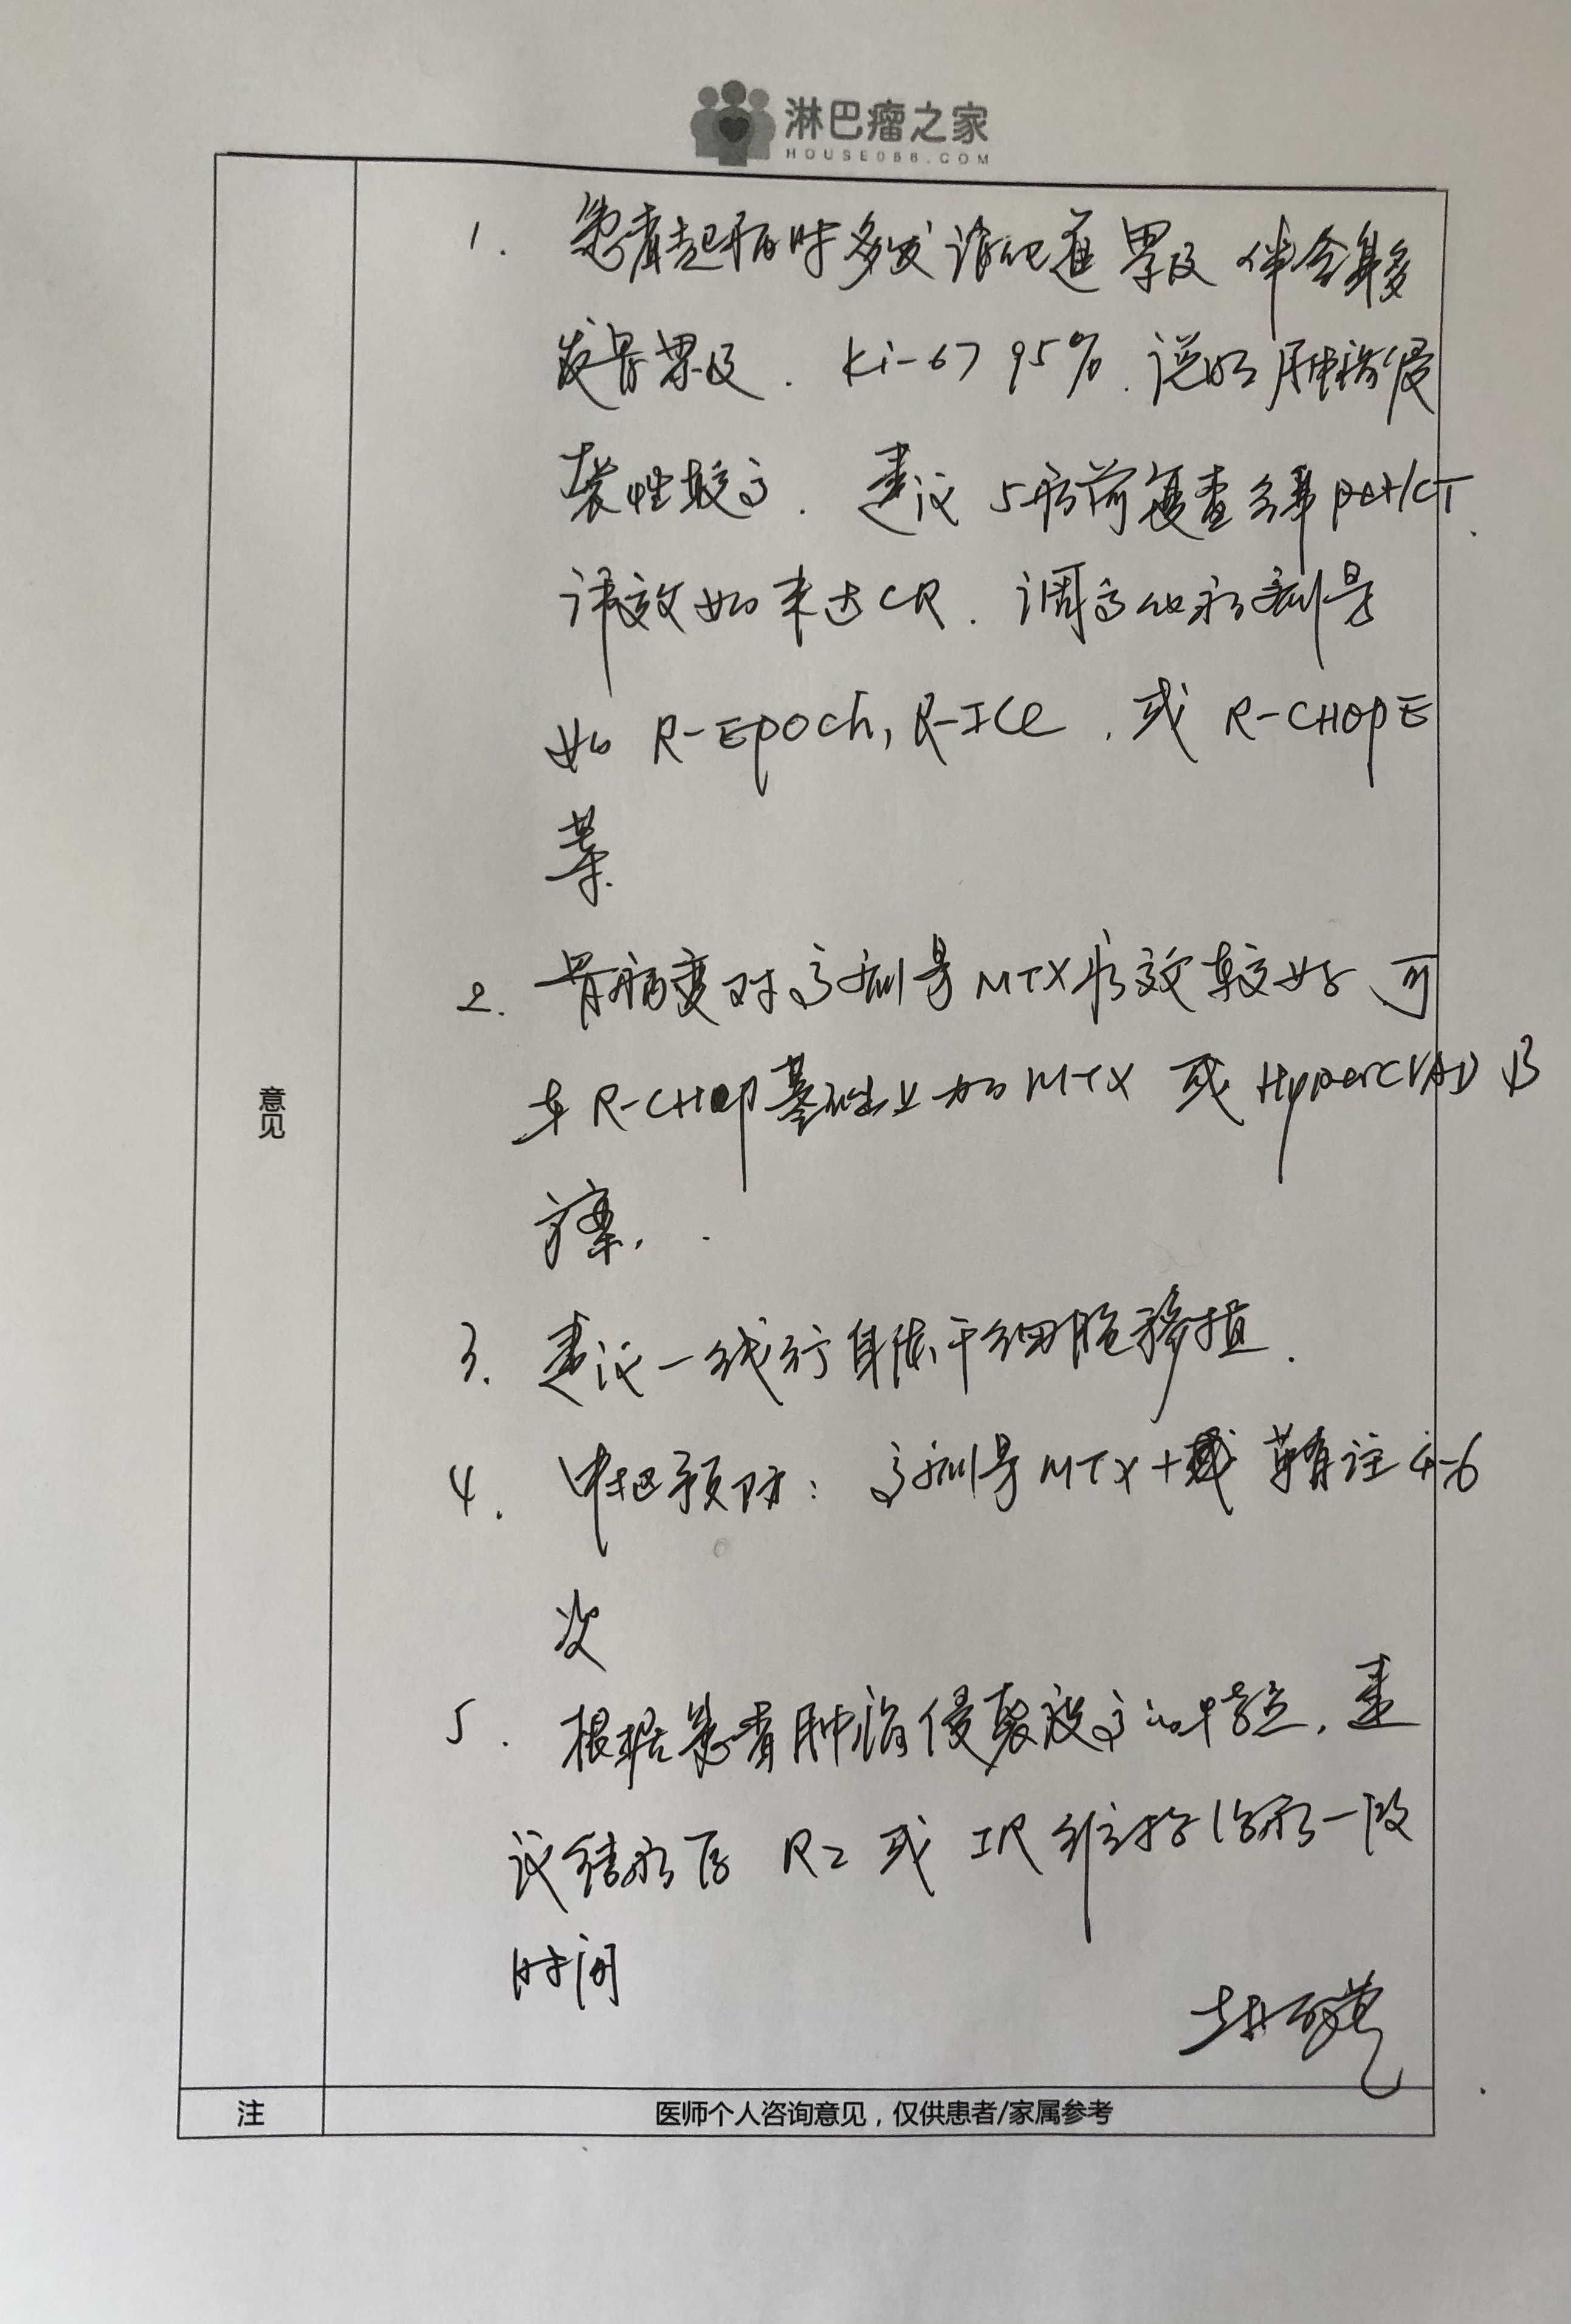 淋巴瘤之家
HOUSE086.COM
1. 患者起病时多发淋巴道累及 伴全身多
发骨累及. Ki-67 95%. 说明肿瘤侵
袭性较高. 建议 5疗前复查全身PET/CT.
评效如未达CR. 调高化疗剂量
如 R-EPOCH, R-ICE, 或 R-CHOPE
等.
2. 骨病变对高剂量MTX疗效较好 可
在R-CHOP基础上加MTX 或 HyperCVAD B
方案.
3. 建议一线行自体干细胞移植.
4. 中枢预防: 高剂量MTX+ 鞘注 4-6
次
5. 根据患者肿瘤侵袭度高的特点, 建
议结疗后 R2 或 IR 维持治疗一段
时间
意见
注
医师个人咨询意见，仅供患者/家属参考